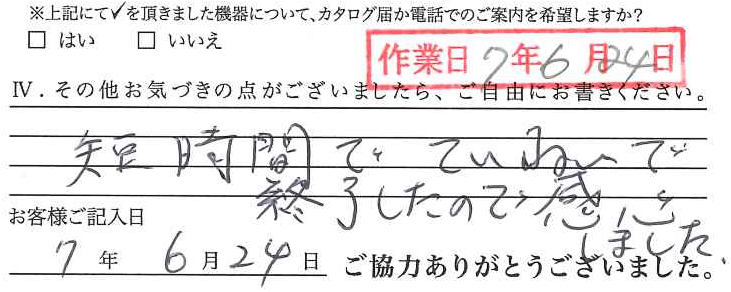 ※上記にて✓を頂きました機器について、カタログ届か電話でのご案内を希望しますか?
□ はい □ いいえ
作業日 7年6月24日
Ⅳ．その他お気づきの点がございましたら、ご自由にお書きください。
短時間で ていねいで
終了したので感心
しました。
お客様ご記入日
7年 6月24日 ご協力ありがとうございました。